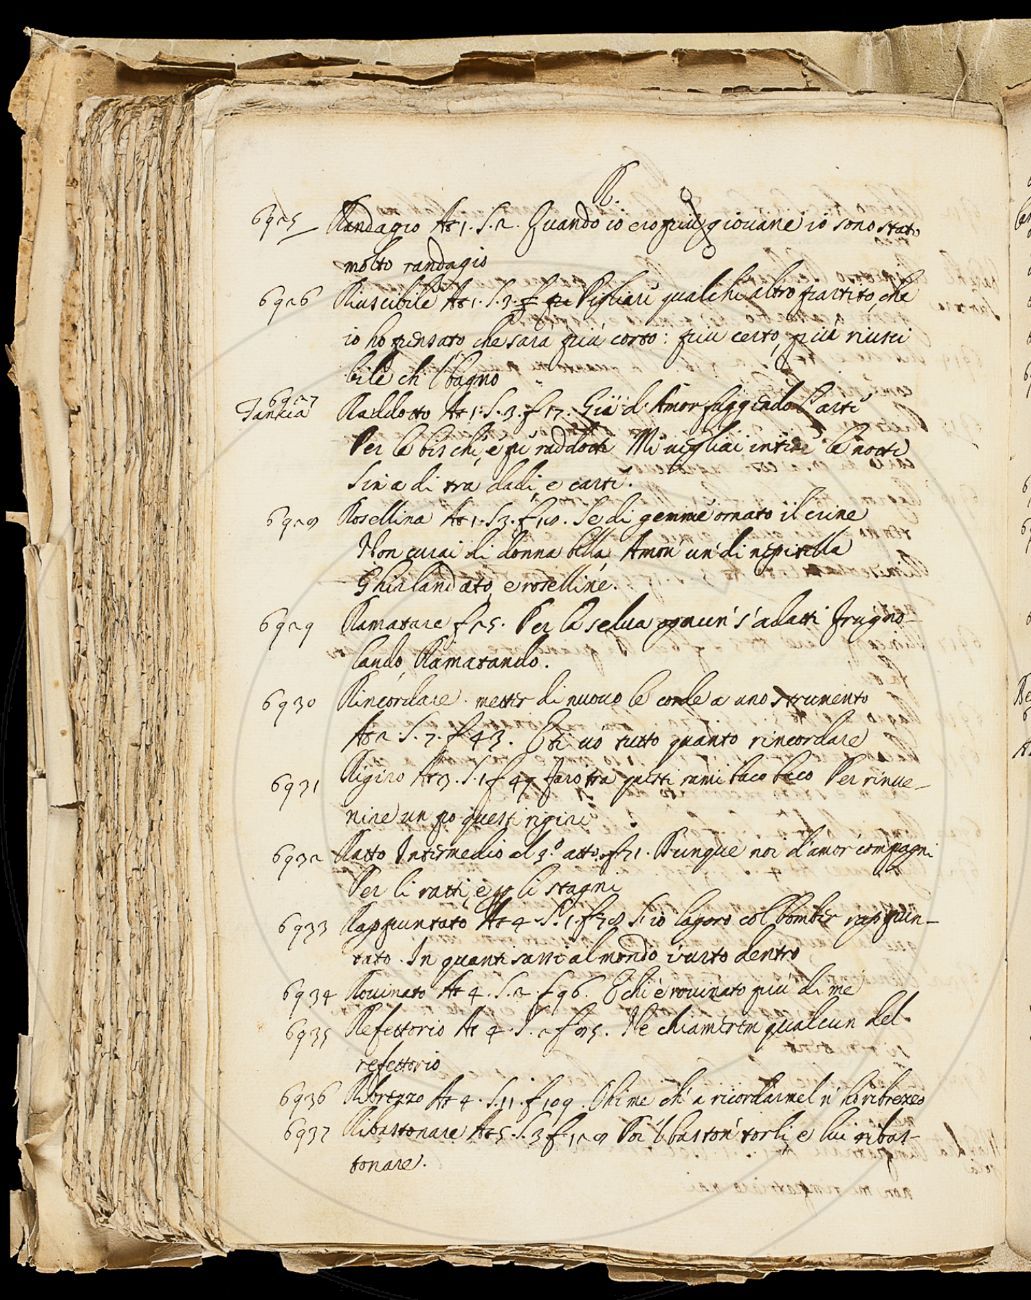 R.
6925 Randagio At 1. S. 2. Quando io ero piu giovane io sono stato
molto randagio
6926 Riuscibile At 1. S. 3. Pigliar' qualch'altro partito che
io ho pensato che sara piu corto: piu certo, piu riusci
bile ch'l bagno
6927
Tancia Raddotto At 1. S. 3. f 17. Gia d'Amor fuggendo l'arti
Per le bische, e pe' raddotti Mi vegliai intere le notti
Sin a di tra dadi, e carti.
6928 Rosellina At 1. S 3. f 18. Se di gemme ornato il crine
Non curai di donna bella Amor un di
Ghirlandato e roselline.
6929 Ramatare f 25. Per la selva ognun' s'adatti Frugno-
lando, Ramatando.
6930 Rincordare. metter di nuovo le corde a uno strumento
At 2. S. 7. f 43. E ti vo tutto quanto rincordare
6931 Rigiro At 3. S. 1 f 49 Faro tra questi rami baco baco Per rinve-
nire un po questi rigiri
6932 Ratto Intermedio al 3.º atto. f 71. Dunque noi d'amor compagni
Per li ratti, e p li stagni
6933 Rappuntato At 4. S. 1. f 78 S'io lavoro col bomber rappun-
tato. In quanti sassi al mondo v'urto dentro
6934 Rovinato At 4. S. 2. f 96. E chi è rovinato piu di me
6935 Refettorio At 4. S. 2 f 95. Ne chiameren qualcun del
refettorio
6936 Ribrezzo At 4. S. 11. f 109. Ohime ch'a ricordarmel n'ho ribrezzo
6937 Ribastonare At 5. S. 3 f 128 Poi 'l baston' torli e lui ribas-
tonare.